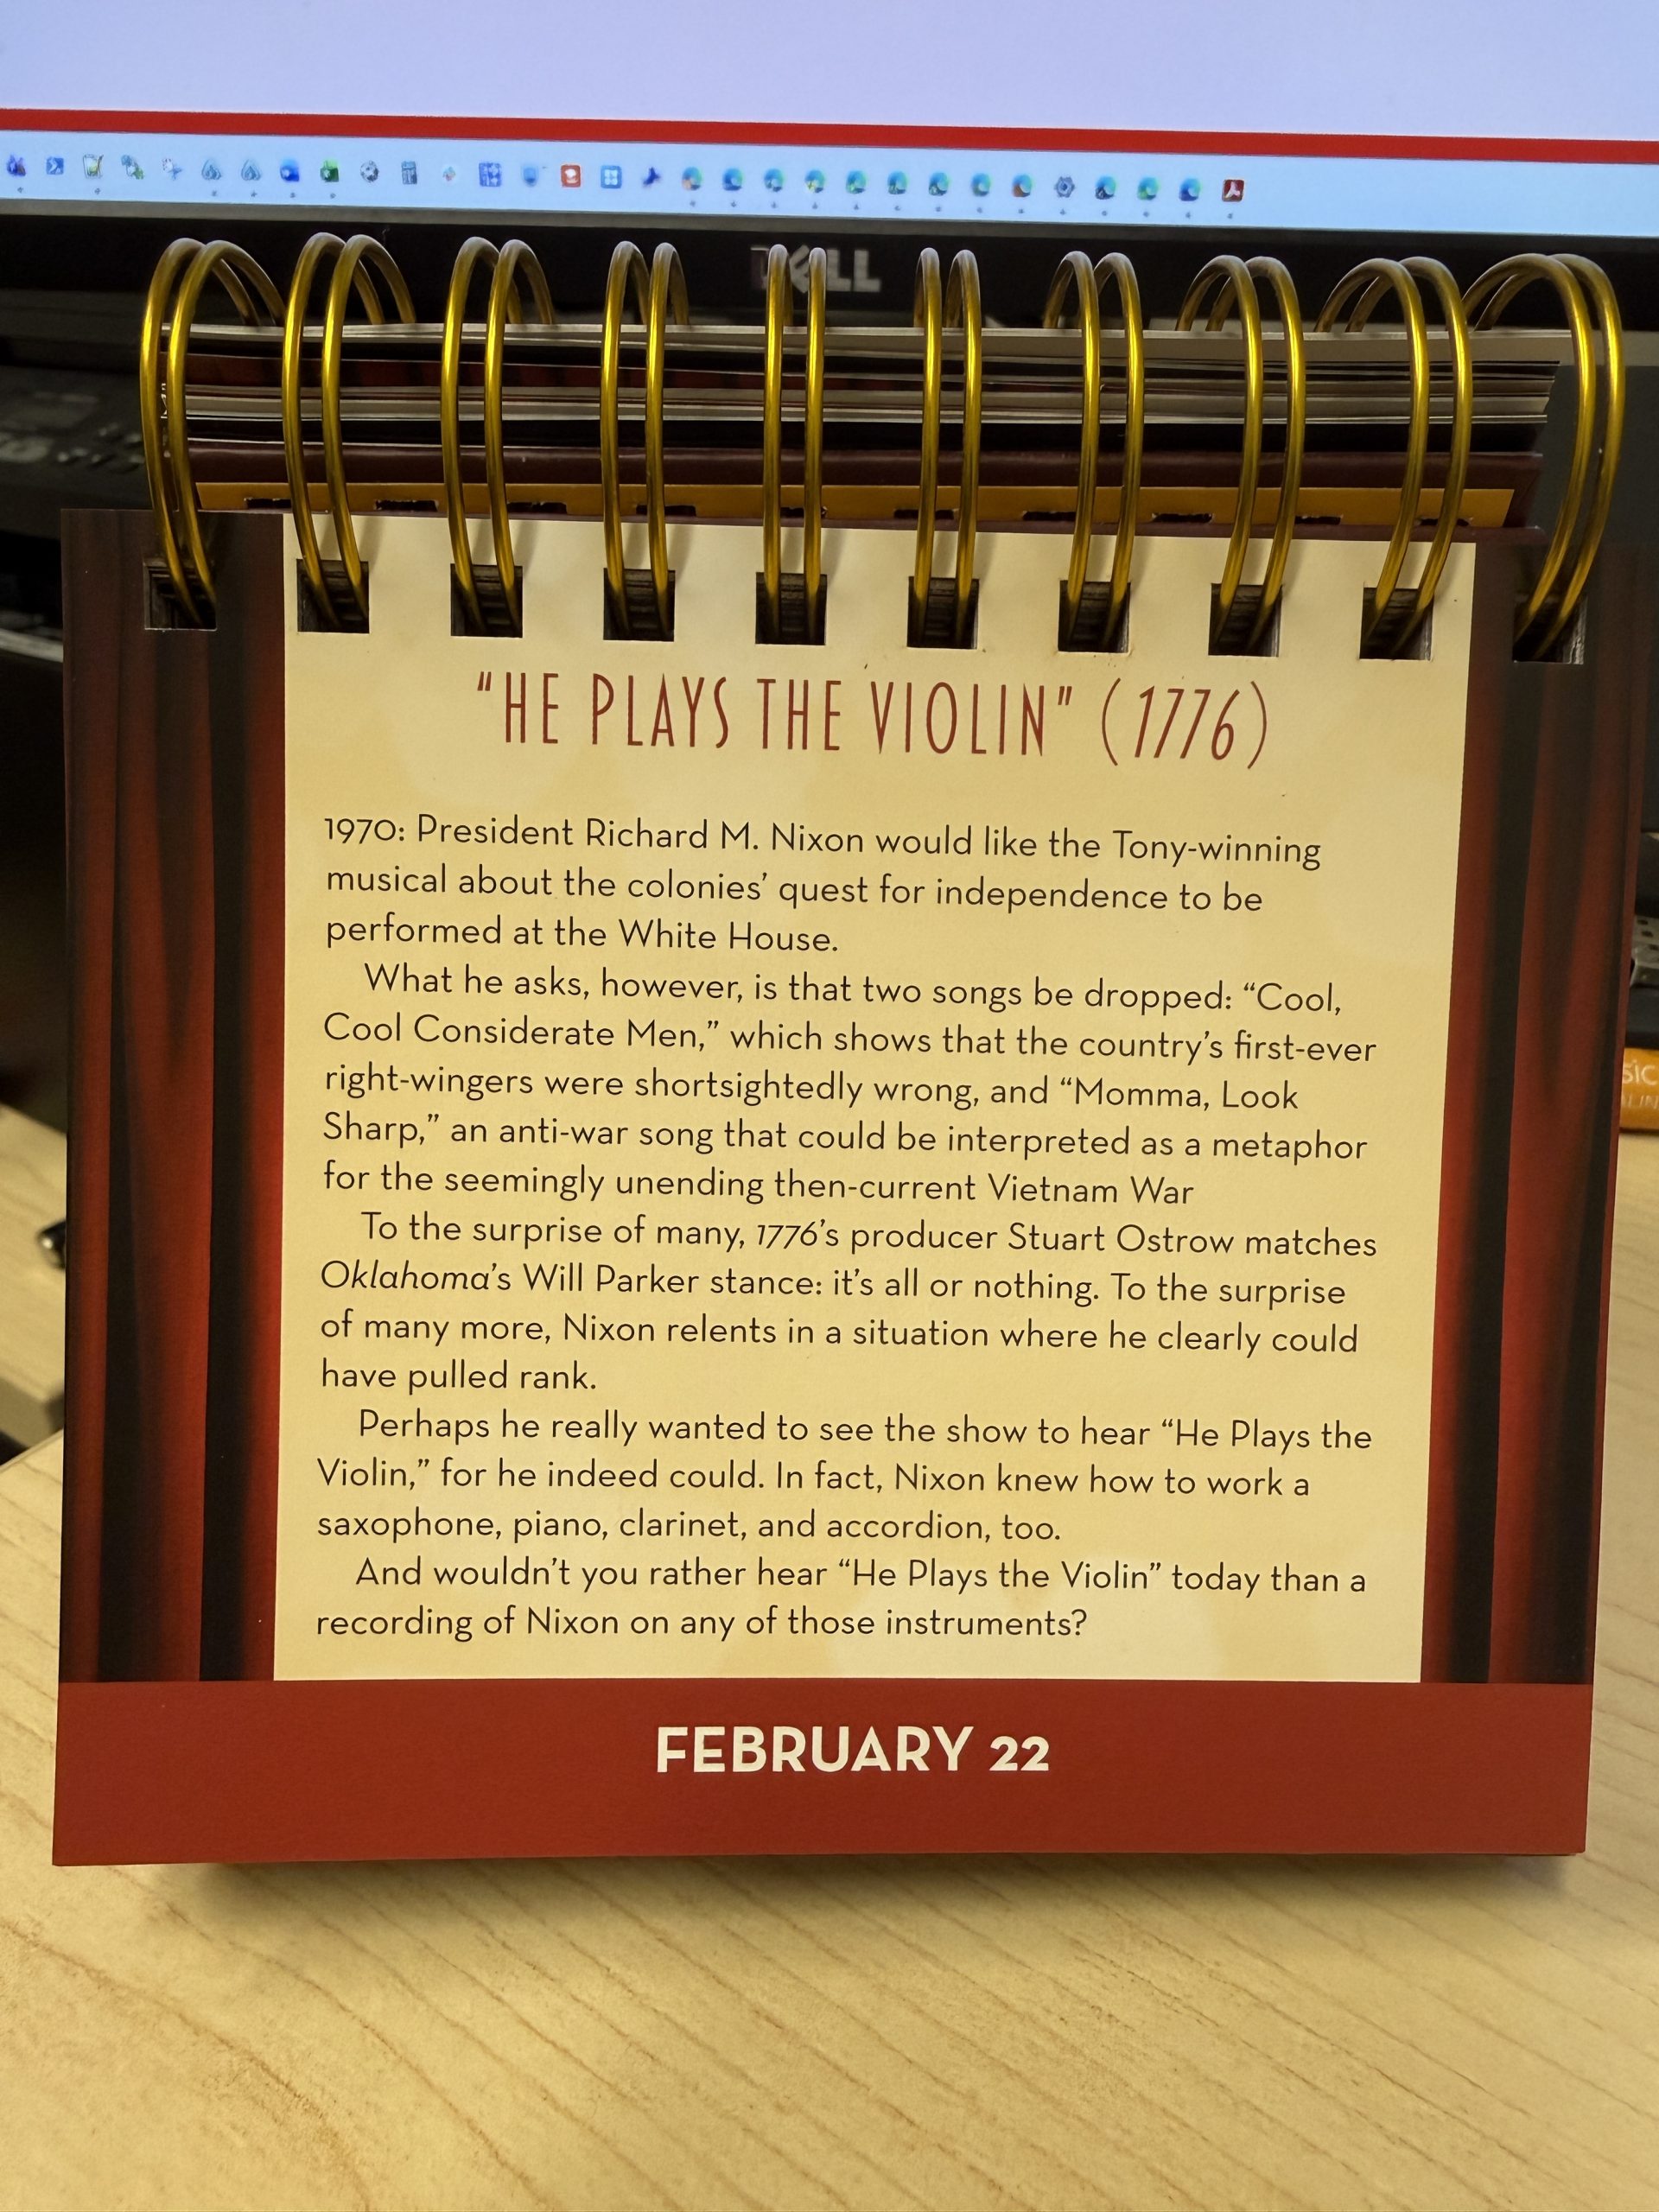 DELL
"HE PLAYS THE VIOLIN" (1776)
1970: President Richard M. Nixon would like the Tony-winning
musical about the colonies' quest for independence to be
performed at the White House.
What he asks, however, is that two songs be dropped: "Cool,
Cool Considerate Men," which shows that the country's first-ever
right-wingers were shortsightedly wrong, and "Momma, Look
Sharp," an anti-war song that could be interpreted as a metaphor
for the seemingly unending then-current Vietnam War
To the surprise of many, 1776's producer Stuart Ostrow matches
Oklahoma's Will Parker stance: it's all or nothing. To the surprise
of many more, Nixon relents in a situation where he clearly could
have pulled rank.
Perhaps he really wanted to see the show to hear "He Plays the
Violin," for he indeed could. In fact, Nixon knew how to work a
saxophone, piano, clarinet, and accordion, too.
And wouldn't you rather hear "He Plays the Violin" today than a
recording of Nixon on any of those instruments?
FEBRUARY 22